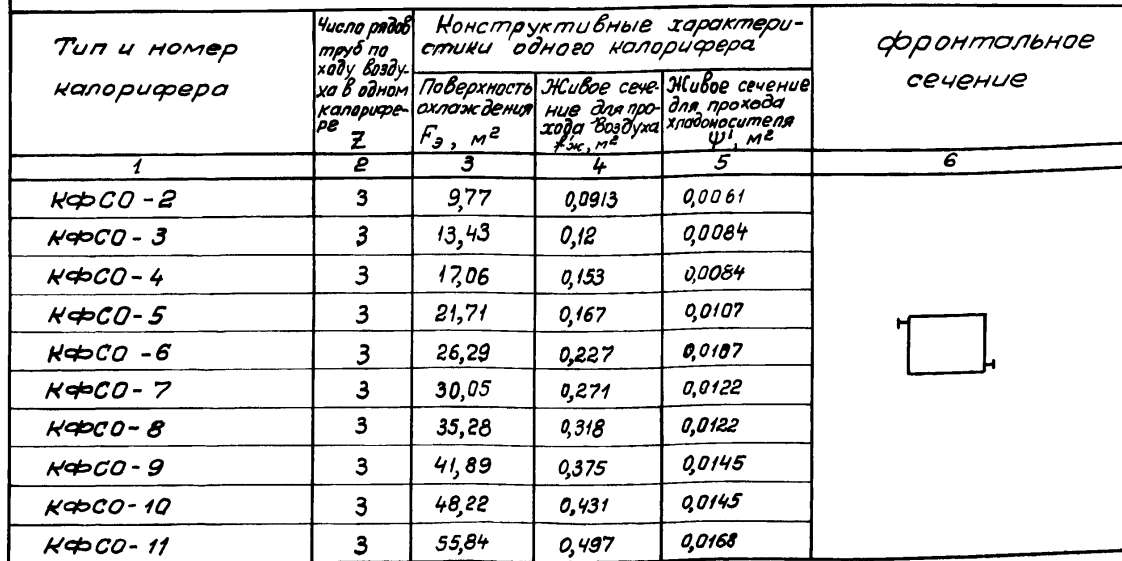 Тип и номер калорифера
Число рядов труб по ходу воздуха в одном калорифере Z
Конструктивные характеристики одного калорифера
Поверхность охлаждения Fэ, м²
Живое сечение для прохода воздуха fж, м²
Живое сечение для прохода хладоносителя Ψ', м²
фронтальное сечение
1 2 3 4 5 6
КФСО-2 3 9,77 0,0913 0,0061
КФСО-3 3 13,43 0,12 0,0084
КФСО-4 3 17,06 0,153 0,0084
КФСО-5 3 21,71 0,167 0,0107
КФСО-6 3 26,29 0,227 0,0107
КФСО-7 3 30,05 0,271 0,0122
КФСО-8 3 35,28 0,318 0,0122
КФСО-9 3 41,89 0,375 0,0145
КФСО-10 3 48,22 0,431 0,0145
КФСО-11 3 55,84 0,497 0,0168